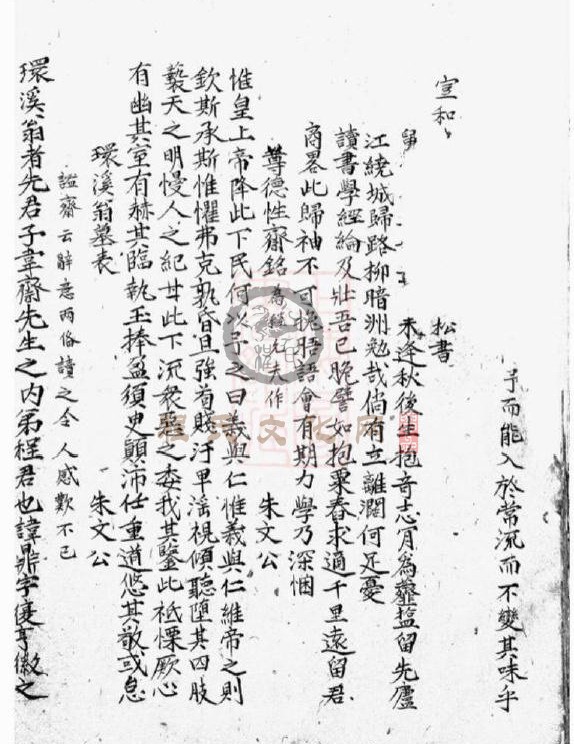 予而能入於常流而不變其味乎
宣和 松書
舅 未逢秋後生抱奇志肯為虀鹽留先廬
江繞城歸路柳暗洲勉哉倘有立離闊何足憂
讀書學經綸及壯吾已晚譬如抱粟舂求適千里遠留君
商畧此歸袖不可挽晤語會有期力學乃深悃
尊德性齋銘 為程允夫作 朱文公
惟皇上帝降此下民何以予之曰義與仁惟義與仁維帝之則
欽斯承斯惟懼弗克孰昏且強苟賤汙卑淫視傾聽墮其四肢
褻天之明慢人之紀甘此下流衆惡之委我其鑒此祗慄厥心
有幽其室有赫其臨執玉捧盈須臾顛沛任重道悠其敢或怠
環溪翁墓表 朱文公
齋云辭意兩 讀之令人感歎不已
環溪翁者先君子韋齋先生之内弟程君也諱鼎字復亨徽之
程氏文化网